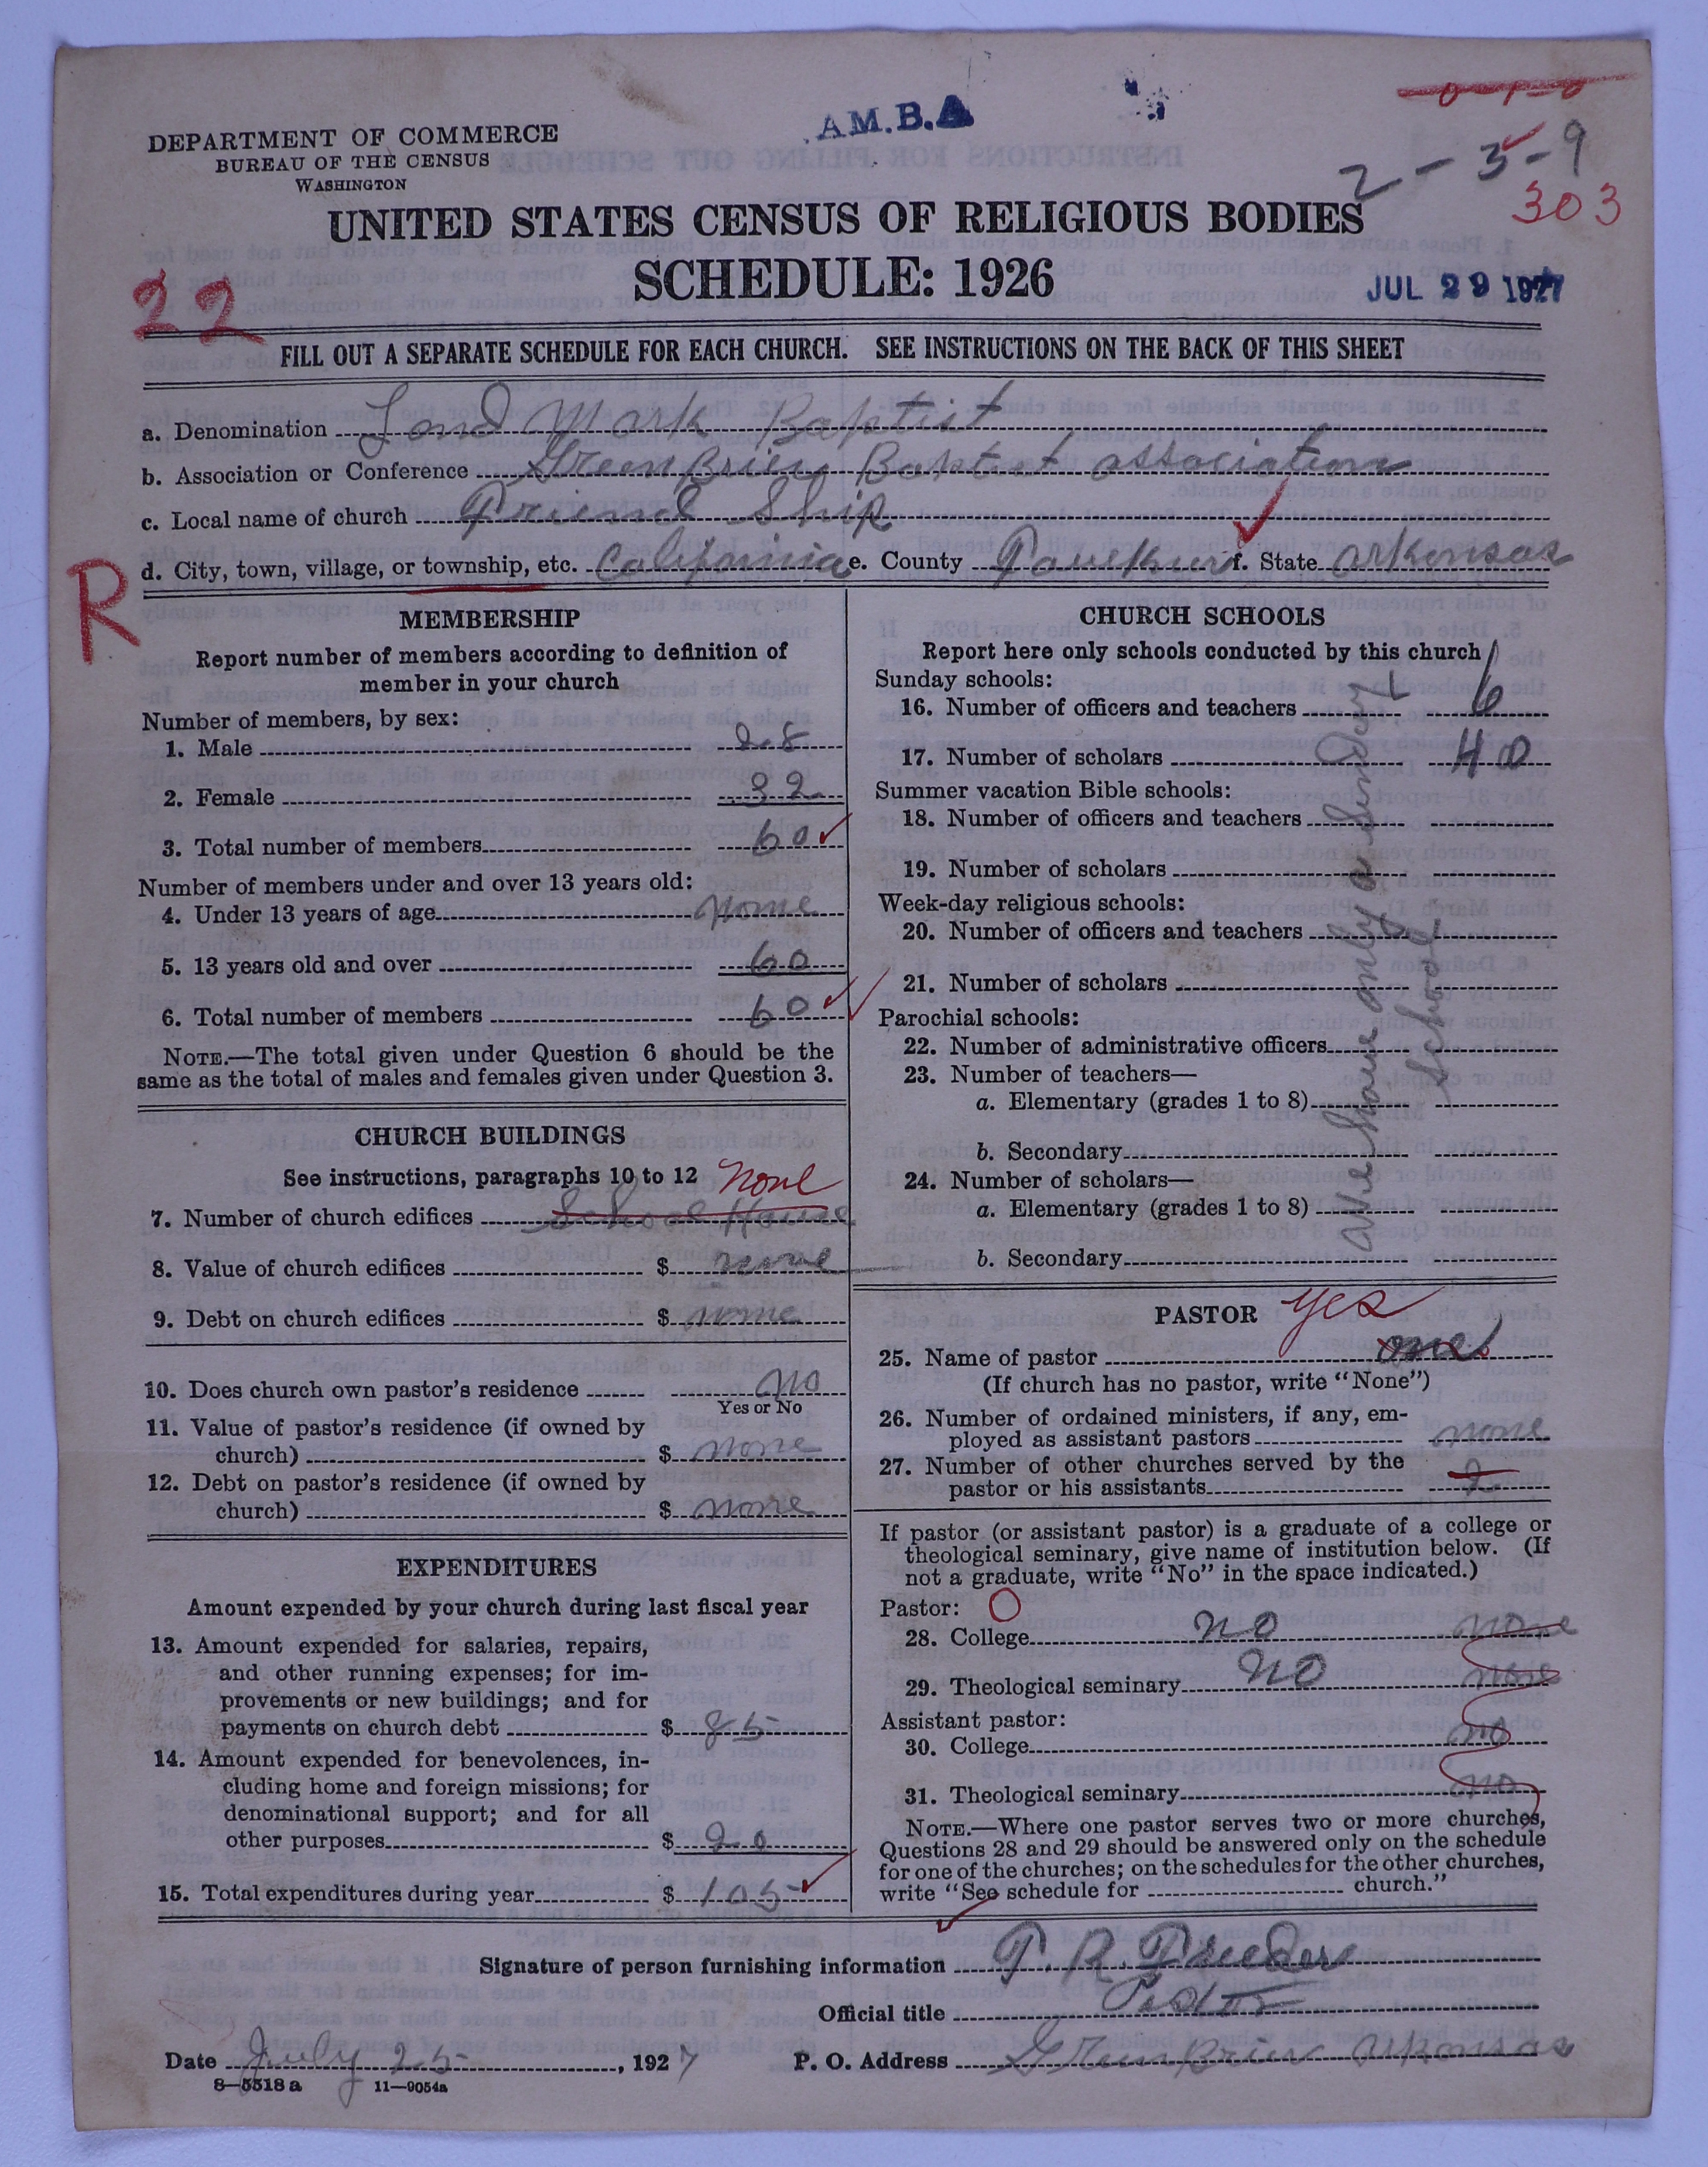 A.M.B.A
0-1-0
DEPARTMENT OF COMMERCE
BUREAU OF THE CENSUS
WASHINGTON
2-3-9
303
UNITED STATES CENSUS OF RELIGIOUS BODIES
SCHEDULE: 1926
JUL 29 1927
22
FILL OUT A SEPARATE SCHEDULE FOR EACH CHURCH. SEE INSTRUCTIONS ON THE BACK OF THIS SHEET
a. Denomination Land Mark Baptist
b. Association or Conference Green Brier Baptist association
c. Local name of church Friend Ship
d. City, town, village, or township, etc. California e. County Faulkner f. State Arkansas
R
MEMBERSHIP
Report number of members according to definition of
member in your church
Number of members, by sex:
1. Male 28
2. Female 32
3. Total number of members 60
Number of members under and over 13 years old:
4. Under 13 years of age none
5. 13 years old and over 60
6. Total number of members 60
NOTE.—The total given under Question 6 should be the
same as the total of males and females given under Question 3.
CHURCH BUILDINGS
See instructions, paragraphs 10 to 12 none
7. Number of church edifices School House
8. Value of church edifices $ none
9. Debt on church edifices $ none
10. Does church own pastor's residence no
Yes or No
11. Value of pastor's residence (if owned by
church) $ none
12. Debt on pastor's residence (if owned by
church) $ none
EXPENDITURES
Amount expended by your church during last fiscal year
13. Amount expended for salaries, repairs,
and other running expenses; for im-
provements or new buildings; and for
payments on church debt $ 85
14. Amount expended for benevolences, in-
cluding home and foreign missions; for
denominational support; and for all
other purposes $ 20
15. Total expenditures during year $ 105
CHURCH SCHOOLS
Report here only schools conducted by this church
Sunday schools:
16. Number of officers and teachers 6
17. Number of scholars 40
Summer vacation Bible schools:
18. Number of officers and teachers
19. Number of scholars
Week-day religious schools:
20. Number of officers and teachers
21. Number of scholars
Parochial schools:
22. Number of administrative officers
23. Number of teachers—
a. Elementary (grades 1 to 8)
b. Secondary
24. Number of scholars—
a. Elementary (grades 1 to 8)
b. Secondary
We have only a Sunday
School
PASTOR yes
25. Name of pastor one
(If church has no pastor, write "None")
26. Number of ordained ministers, if any, em-
ployed as assistant pastors none
27. Number of other churches served by the
pastor or his assistants 2
If pastor (or assistant pastor) is a graduate of a college or
theological seminary, give name of institution below. (If
not a graduate, write "No" in the space indicated.)
Pastor: O
28. College no none
29. Theological seminary no none
Assistant pastor:
30. College no
31. Theological seminary no
NOTE.—Where one pastor serves two or more churches,
Questions 28 and 29 should be answered only on the schedule
for one of the churches; on the schedules for the other churches,
write "See schedule for church."
Signature of person furnishing information
Official title Pastor
Date July 25, 1927 P. O. Address Greenbrier Arkansas
8—5518 a 11—9054a